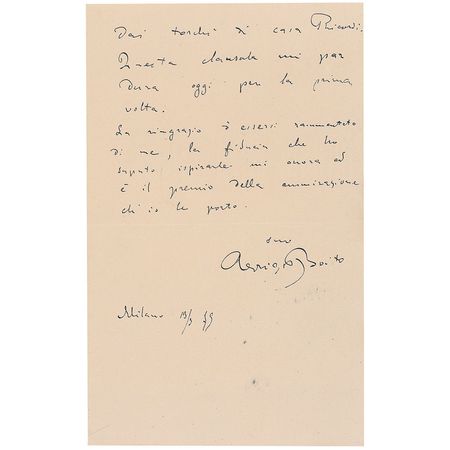 Dai torchi di casa Ricordi.
Questa clausola mi par
dura oggi per la prima
volta.
La ringrazio d'essersi rammentato
di me, la fiducia che ho
saputo ispirarle mi onora ed
è il premio della ammirazione
ch'io le porto.
suo
Arrigo Boito
Milano